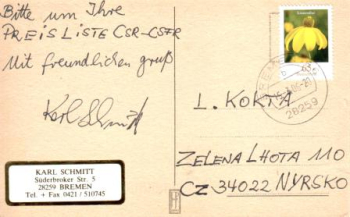 Bitte um Ihre
PREISLISTE CSR-CSFR
Mit freundlichen gruß
Karl Schmitt
KARL SCHMITT
Süderbroker Str. 5
28259 BREMEN
Tel. + Fax 0421 / 510745
28259
L. KOKTA
ZELENA LHOTA 110
CZ 34022 NYRSKO